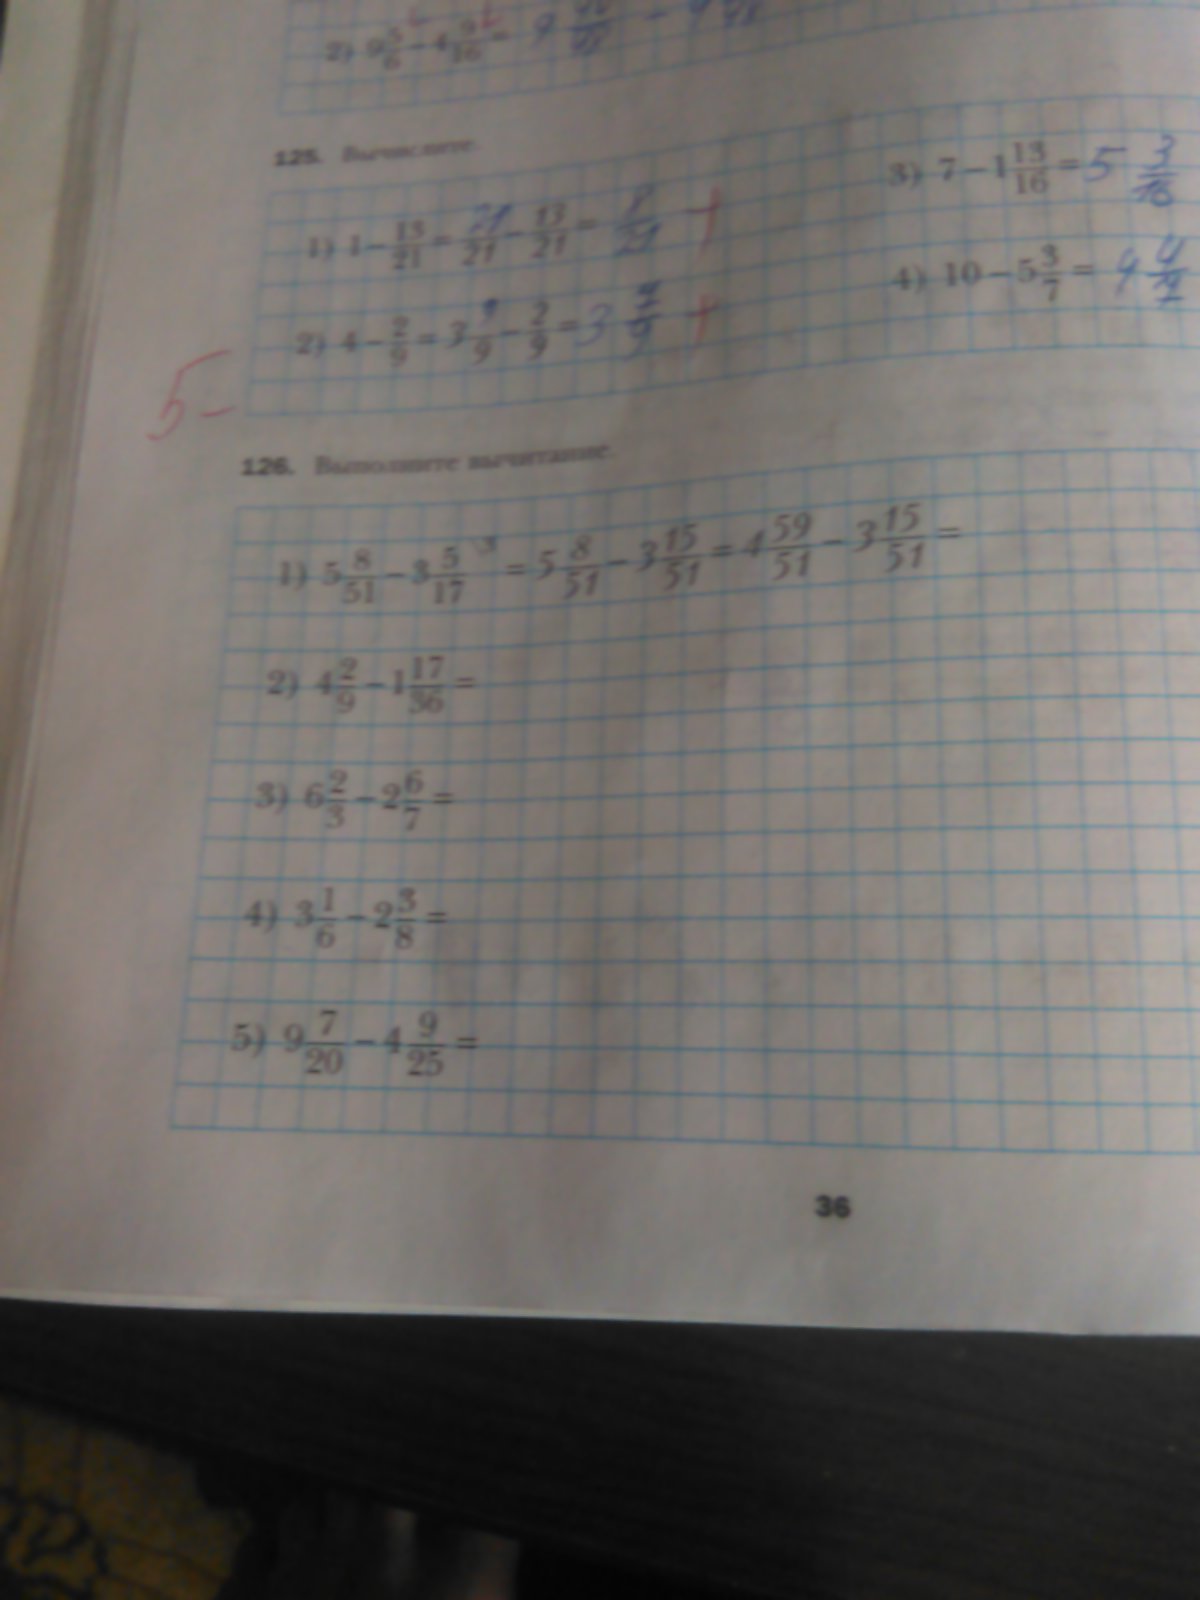 2) 9 5/6 − 4 9/16 = 9
125. Вычислите.
1) 1 − 13/21 = 21/21 − 13/21 = 8/21 +
3) 7 − 1 13/16 = 5 3/16
2) 4 − 2/9 = 3 9/9 − 2/9 = 3 7/9 +
4) 10 − 5 3/7 = 4 4/7
5−
126. Выполните вычитание.
1) 5 8/51 − 3 5/17 ^3 = 5 8/51 − 3 15/51 = 4 59/51 − 3 15/51 =
2) 4 2/9 − 1 17/36 =
3) 6 2/3 − 2 6/7 =
4) 3 1/6 − 2 3/8 =
5) 9 7/20 − 4 9/25 =
36